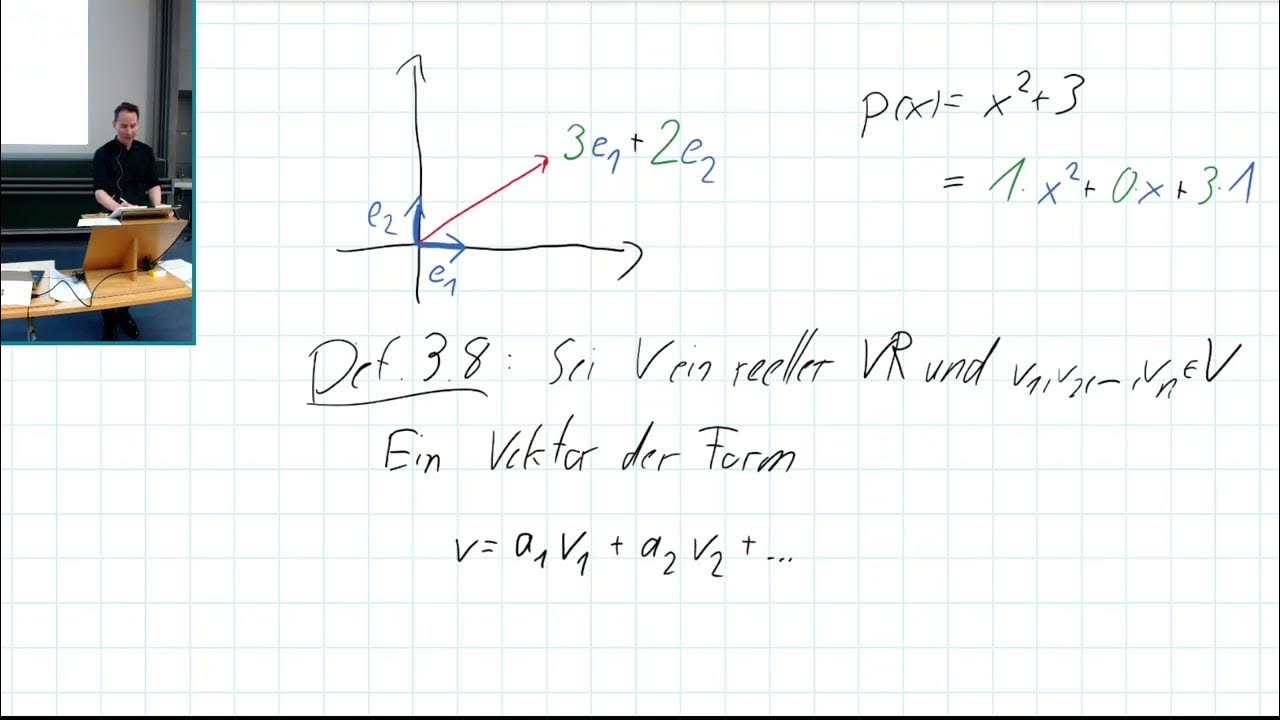 3e₁ + 2e₂
e₂
e₁
p(x) = x² + 3
= 1·x² + 0·x + 3·1
Def. 3.8: Sei V ein reeller VR und v₁, v₂, ..., vₙ ∈ V
Ein Vektor der Form
v = a₁v₁ + a₂v₂ + ...